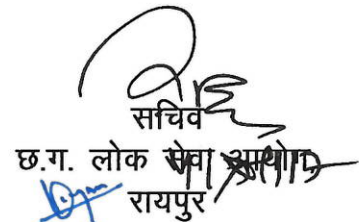 सचिव
छ.ग. लोक सेवा आयोग
रायपुर